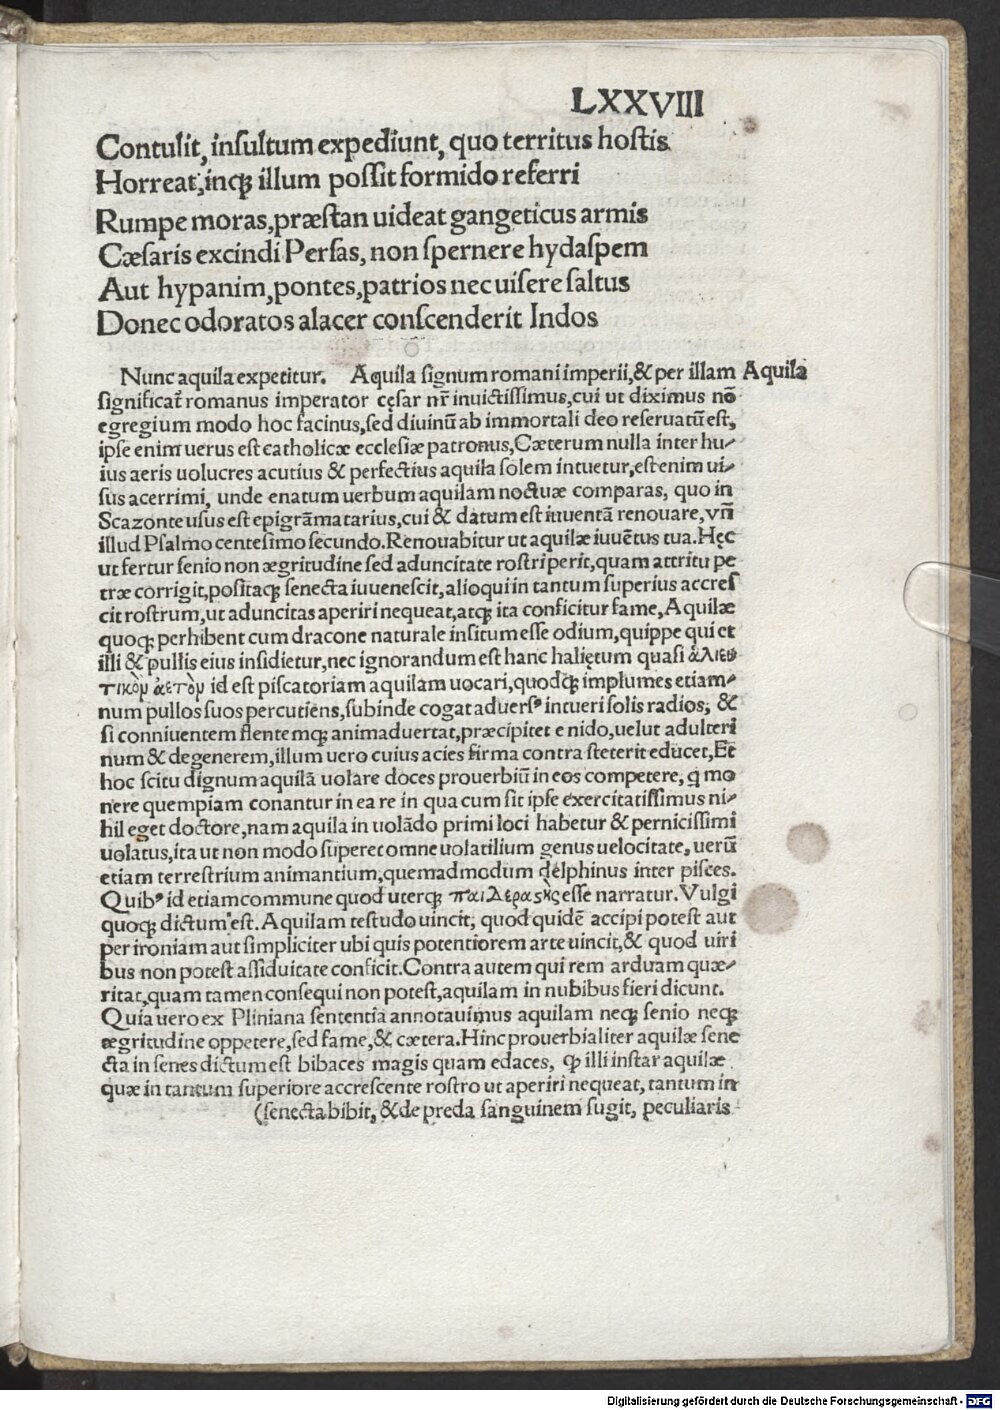 LXXVIII
Contulit, insultum expediunt, quo territus hostis
Horreat, inqȝ illum possit formido referri
Rumpe moras, præstan uideat gangeticus armis
Cæsaris excindi Persas, non spernere hydaspem
Aut hypanim, pontes, patrios nec uisere saltus
Donec odoratos alacer conscenderit Indos
Nunc aquila expetitur. Aquila signum romani imperii, & per illam Aquila
significat᷑ romanus imperator cęsar nr̄ inuictissimus, cui ut diximus nō
egregium modo hoc facinus, sed diuinū ab immortali deo reseruatū est,
ipse enim uerus est catholicæ ecclesiæ patronus, Cæterum nulla inter hu-
ius aeris uolucres acutius & perfectius aquila solem intuetur, est enim ui-
sus acerrimi, unde enatum uerbum aquilam noctuæ comparas, quo in
Scazonte usus est epigrāmatarius, cui & datum est iuuentā renouare, vñ
illud Psalmo centesimo secundo. Renouabitur ut aquilæ iuuētus tua. Hęc
ut fertur senio non ægritudine sed aduncitate rostri perit, quam attritu pe
træ corrigit, positaqȝ senecta iuuenescit, alioqui in tantum superius accres
cit rostrum, ut aduncitas aperiri nequeat, atqȝ ita conficitur fame, Aquilæ
quoqȝ perhibent cum dracone naturale insitum esse odium, quippe qui et
illi & pullis eius insidietur, nec ignorandum est hanc haliętum quasi ἁλιευ
τικὸν ἀετὸν id est piscatoriam aquilam uocari, quodqȝ implumes etiam-
num pullos suos percutiens, subinde cogat aduersꝰ intueri solis radios, &
si conniuentem flentemqȝ animaduertat, præcipitet e nido, uelut adulteri
num & degenerem, illum uero cuius acies firma contra steterit educet, Et
hoc scitu dignum aquilā uolare doces prouerbiū in eos competere, q̇ mo
nere quempiam conantur in ea re in qua cum sit ipse exercitatissimus ni-
hil eget doctore, nam aquila in uolādo primi loci habetur & pernicissimi
uolatus, ita ut non modo superet omne uolatilium genus uelocitate, uerū
etiam terrestrium animantium, quemadmodum delphinus inter pisces.
Quibꝰ id etiam commune quod uterqȝ παιδεραςὴς esse narratur. Vulgi
quoqȝ dictum est. Aquilam testudo uincit, quod quidē accipi potest aut
per ironiam aut simpliciter ubi quis potentiorem arte uincit, & quod uiri
bus non potest assiduitate conficit. Contra autem qui rem arduam quæ-
ritat, quam tamen consequi non potest, aquilam in nubibus fieri dicunt.
Quia uero ex Pliniana sententia annotauimus aquilam neqȝ senio neqȝ
ægritudine oppetere, sed fame, & cætera. Hinc prouerbialiter aquilæ sene
cta in senes dictum est bibaces magis quam edaces, ꝙ illi instar aquilæ
quæ in tantum superiore accrescente rostro ut aperiri nequeat, tantum in
(senecta bibit, & de preda sanguinem sugit, peculiaris
Digitalisierung gefördert durch die Deutsche Forschungsgemeinschaft - DFG